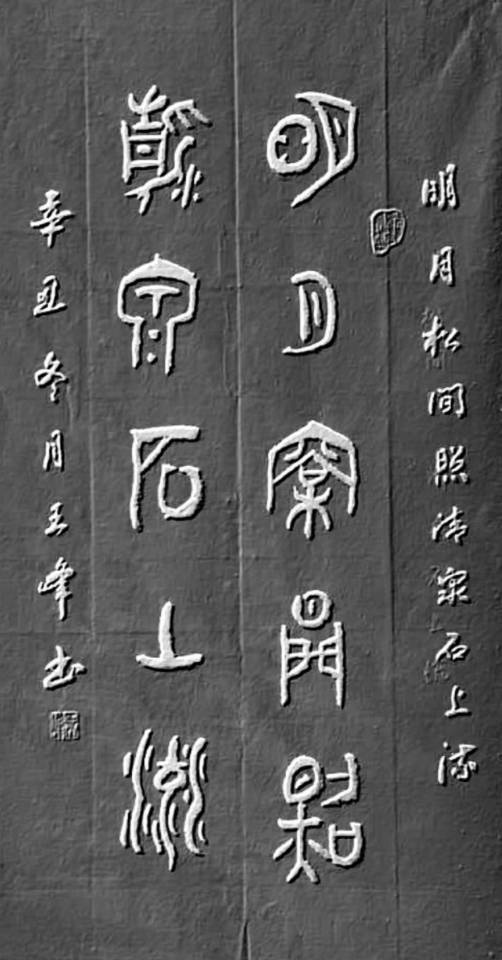 明月松間照清泉石上流
明月松間照
清泉石上流
辛丑冬月王峰书